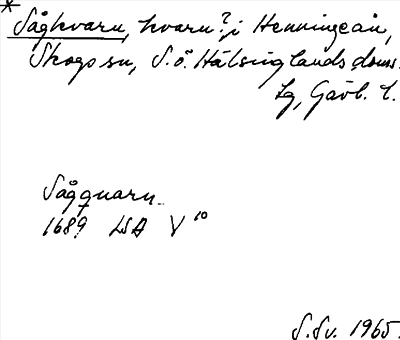 *
Såghvarn, kvarn? i Henningeån,
Skogs sn, S.ö. Hälsinglands doms.
lg, Gävl. l.
Sågquarn
1689 LSA V¹⁰
S. Sv. 1965.